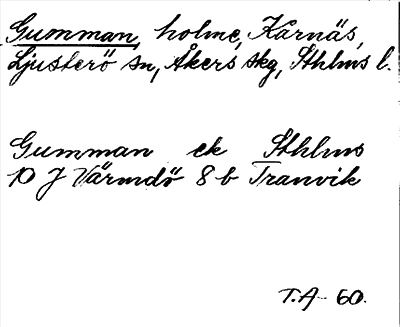 Gumman, holme, Karnäs,
Ljusterö sn, Åkers skg, Sthlms l.
Gumman ek Sthlms
10 J Värmdö 8 b Tranvik
T.A- 60.